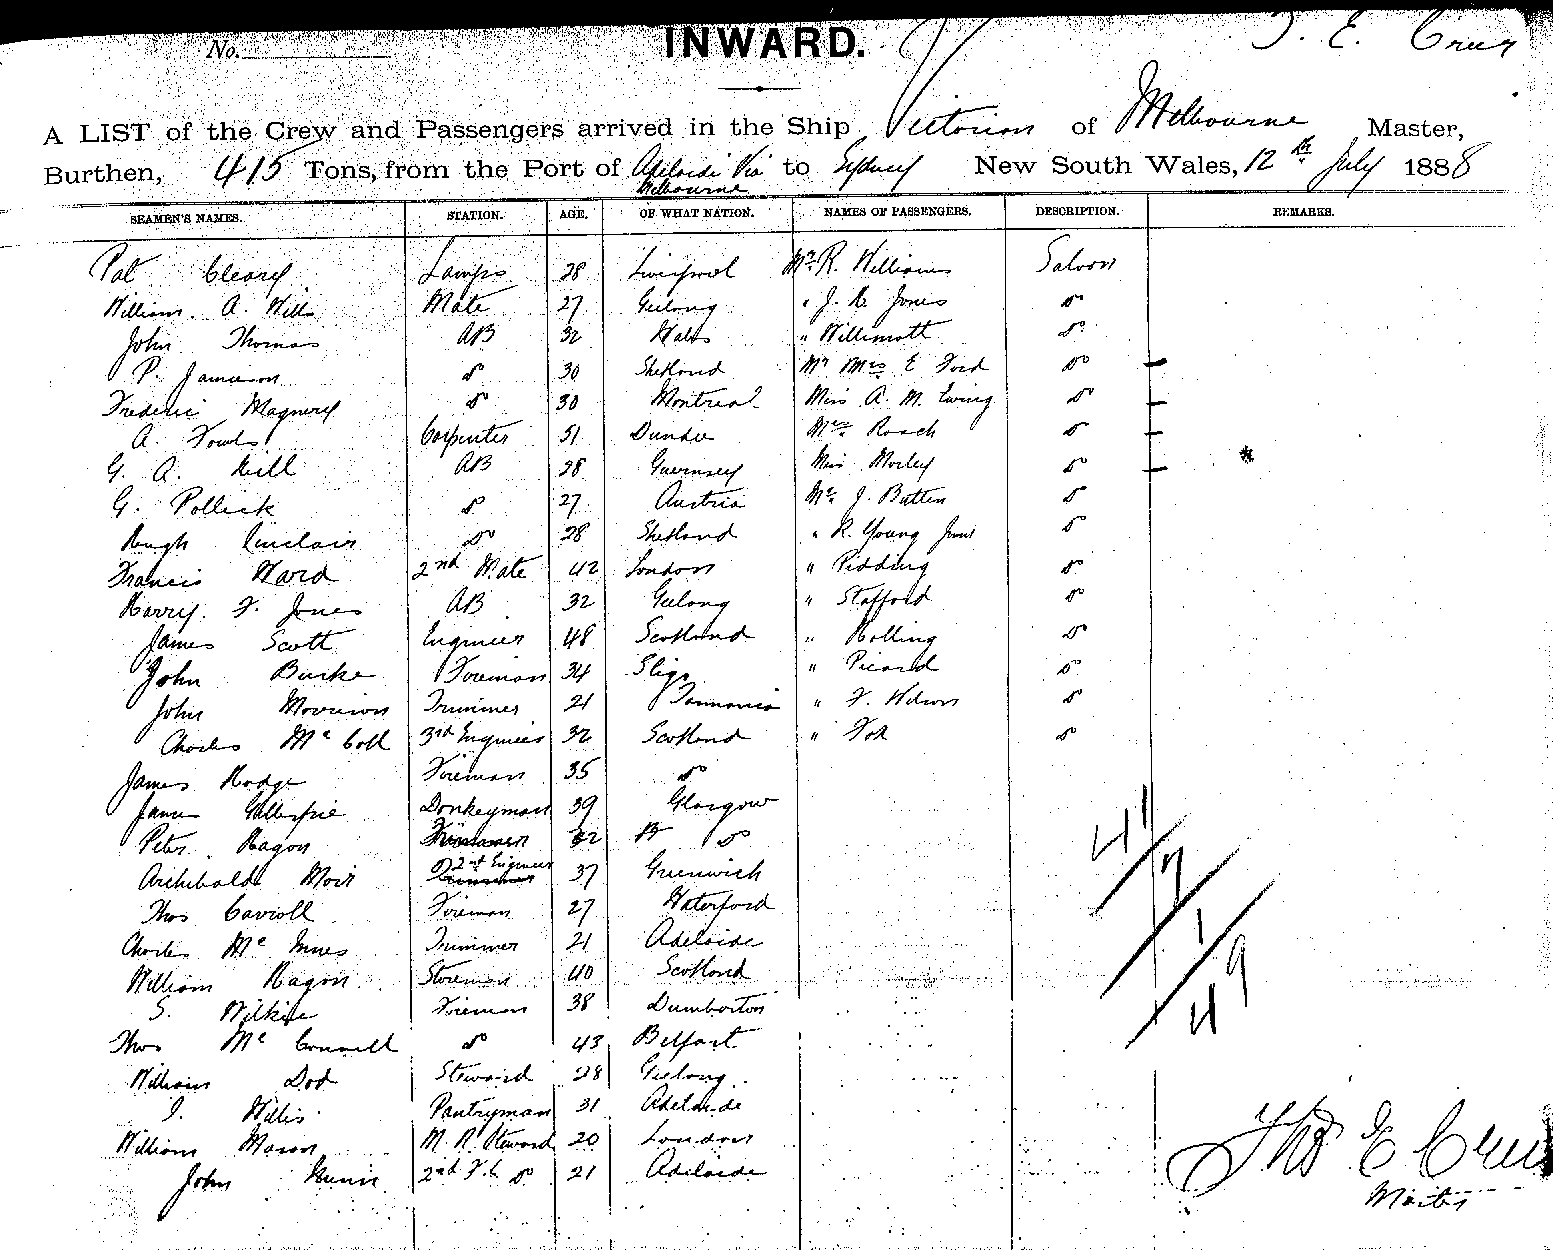 No.
INWARD.
T. E. Creer
A LIST of the Crew and Passengers arrived in the Ship Victorian of Melbourne Master,
Burthen, 415 Tons, from the Port of Adelaide Via Melbourne to Sydney New South Wales, 12th July 1888
SEAMEN'S NAMES. STATION. AGE. OF WHAT NATION. NAMES OF PASSENGERS. DESCRIPTION. REMARKS.
Pat Cleary Lamps 28 Liverpool Mr. R. Williams Saloon
William A. Wills Mate 27 Geelong " J. H. Jones do
John Thomas AB 32 Wales " Willimott do
P. Jamieson do 30 Shetland Mr Mrs E Ford do
Frederic do 30 Montreal Miss A. M. Ewing do
A. Carpenter 51 Dundee Mrs. Roach do
G. A. Hill AB 28 Guernsey Miss Morley do
G. Pollick do 27 Austria Mr. J. Batten do
Hugh Sinclair do 28 Shetland " R. Young Junr do
Francis Ward 2nd Mate 42 London " Pidding do
Harry F. Jones AB 32 Geelong " Stafford do
James Scott Engineer 48 Scotland " Holling do
John Burke Fireman 34 Sligo " Picard do
John Morrison Trimmer 21 Tasmania " F. Wilson do
Charles McColl 3rd Engineer 32 Scotland " Fox do
James Hodge Fireman 35 do
James Gillespie Donkeyman 39 Glasgow
Peter Hagon 32 do
Archibald Moir 2nd Engineer 37 Greenwich
Thos Carroll Fireman 27 Waterford
Charles McInnes Trimmer 21 Adelaide
William Hagon Storeman 40 Scotland
S. Wilkie Fireman 38 Dumbarton
Thos McConnell do 43 Belfast
William Dod Steward 28 Geelong
J. Willis Pantryman 31 Adelaide
William Mason M. R. Steward 20 London
John 2nd F.C. do 21 Adelaide
41
7
1
49
Thos E Creer
Master